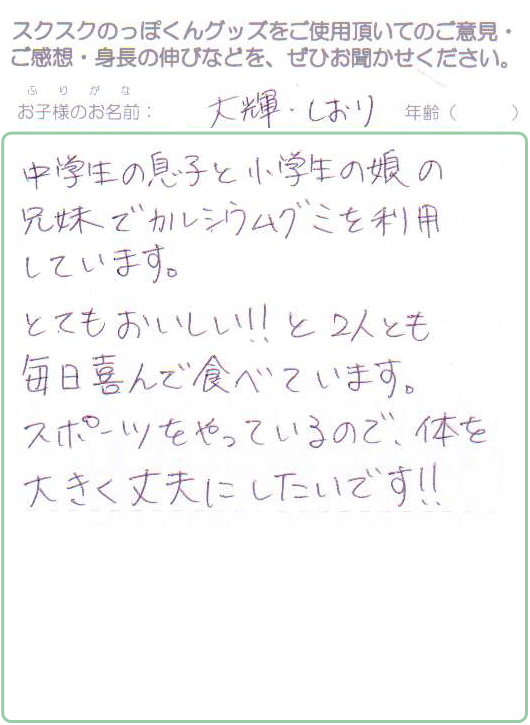 スクスクのっぽくんグッズをご使用頂いてのご意見・
ご感想・身長の伸びなどを、ぜひお聞かせください。
ふりがな
お子様のお名前： 大輝・しおり 年齢（　　）
中学生の息子と小学生の娘の
兄妹でカルシウムグミを利用
しています。
とてもおいしい!!と2人とも
毎日喜んで食べています。
スポーツをやっているので、体を
大きく丈夫にしたいです!!